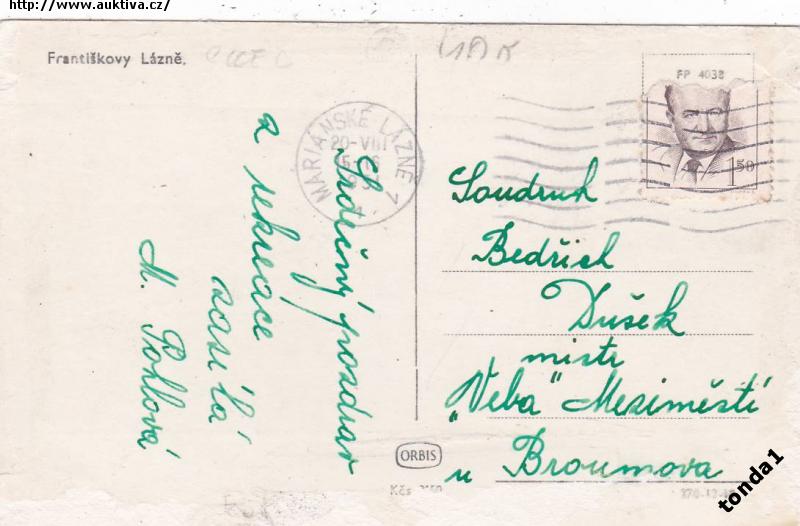 http://www.auktiva.cz/
Františkovy Lázně.
FP 4038
1.50
MARIÁNSKÉ LÁZNĚ 7
20-VIII
Srdečný pozdrav
z rekreace
zasílá
M. Pohlová
Soudruh
Bedřich
Dušek
mistr
„Veba“ Meziměstí
u Broumova
ORBIS
Kčs
tonda1